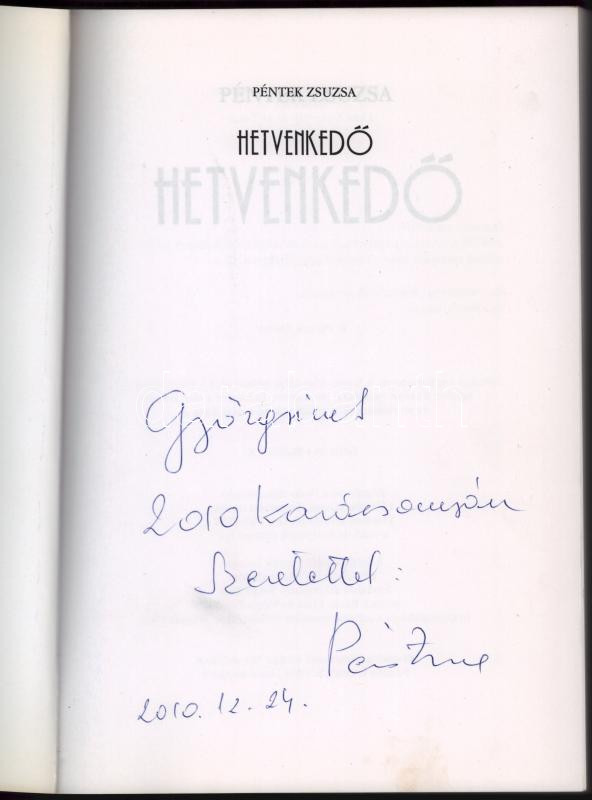 PÉNTEK ZSUZSA
HETVENKEDŐ
2010 karácsonyán
Szeretettel:
2010. 12. 24.